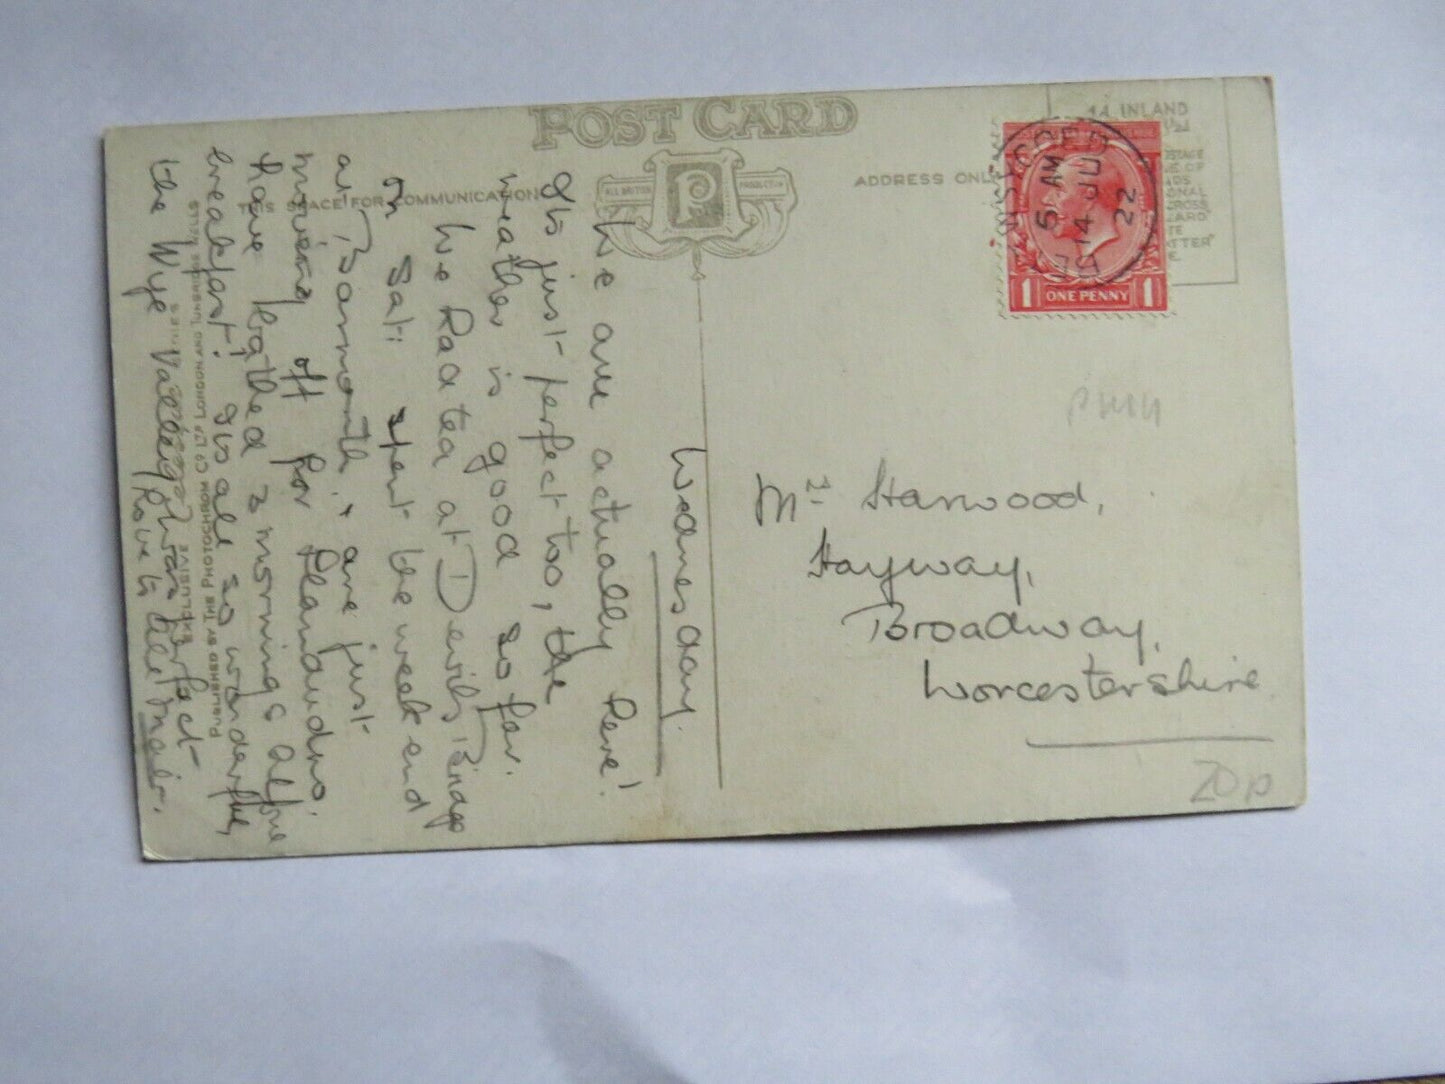 POST CARD
ALL BRITISH PRODUCTION
P
THIS SPACE FOR COMMUNICATION
ADDRESS ONLY
INLAND
½d
POSTAGE
5 AM
14 JU
22
1 ONE PENNY 1
Wednesday.
We are actually here!
It's just perfect too, the
weather is good so far.
We had tea at Devil's Bridge
on Sat: spent the week end
at Barmouth & are just
moving off for Llandudno.
Have bathed 2 mornings before
breakfast! It's all so wonderful,
the Wye Valley was perfect
Love to all Mair.
Mr. Harwood,
Hayway,
Broadway,
Worcestershire
20p
EXCLUSIVE
PUBLISHED BY THE PHOTOCHROM CO LTD LONDON AND TUNBRIDGE WELLS